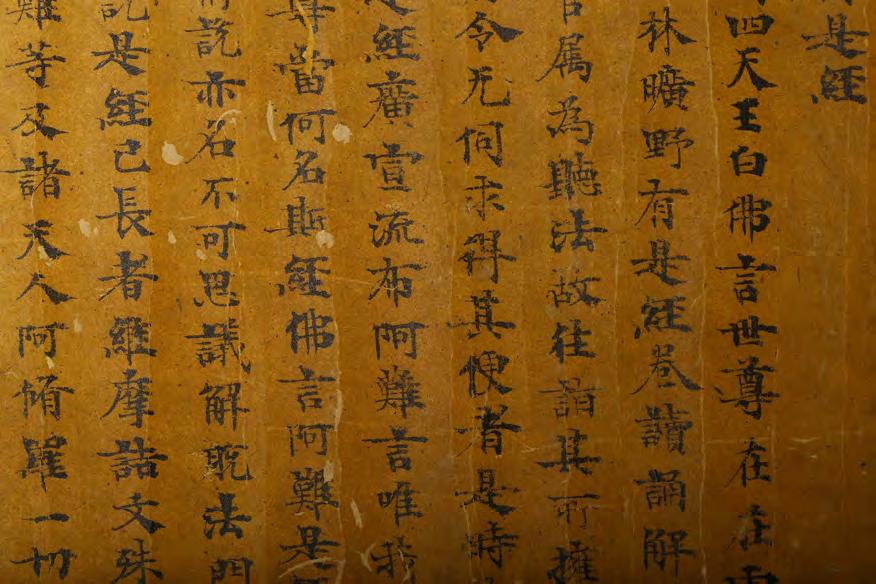 是經
四天王白佛言世尊在在
林曠野有是經卷讀誦解
官属為聽法故往詣其所擁
令无伺求得其便者是時
是經廣宣流布阿難言唯我
尊當何名斯經佛言阿難是
所說亦名不可思議解脫法門
說是經已長者維摩詰文殊
難等及諸天人阿脩羅一切